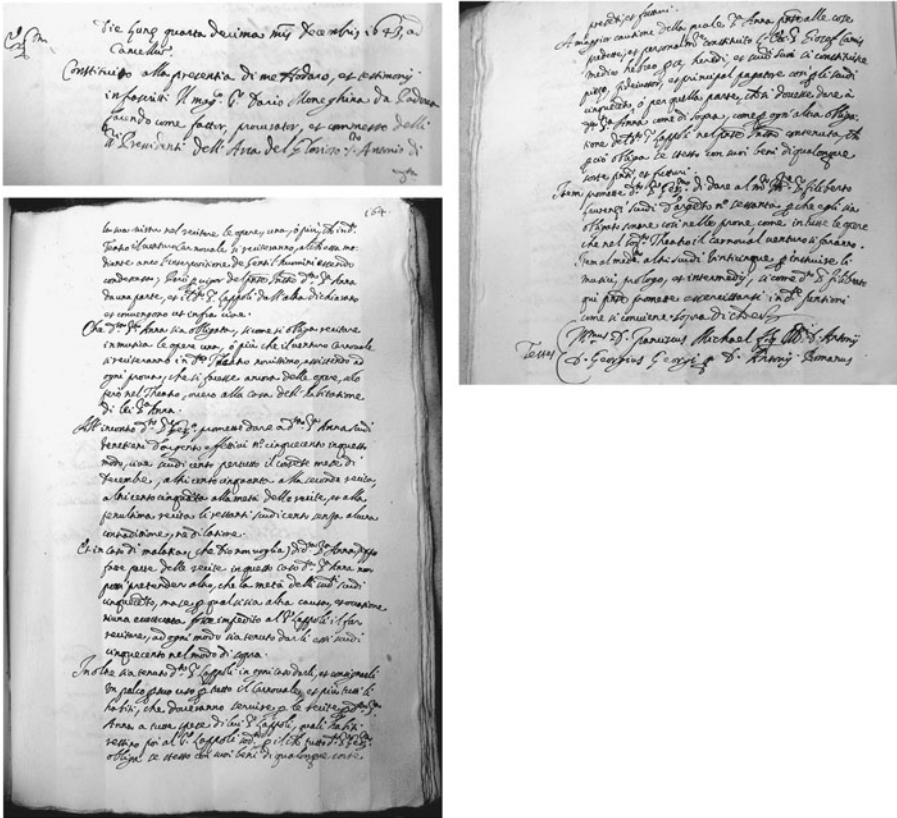 Die lune quarta decima mis Decembris 1643, ad
Cancellum
Constituito alla presentia di me Nodaro, et testimonij
infrascritti Il mag.co S.r Dario Moneghina da Padova
facendo come fattor, procurator, et commesso delli
Presidenti dell'Arca del Glorioso S. Antonio di
164.
la sua virtù nel recitare le opere, una, ò più, ch in d.to
Teatro il venturo Carnovale si reciteranno, al che essa me-
diante anco l'interpositione de Gentil'huomini essendo
condescesa; Però per vigor del pnte Instro d.ta S.ra Anna
da una parte, et il d.to S.r Lappoli dall'altra dichiarano
et convengono ut infra cioè.
Che d.ta S.ra Anna sia obligata, sicome si obliga recitare
in musica le opere una, ò più che il venturo Carnovale
si reciteranno in d.to Theatro novissimo, assistendo ad
ogni prova, che si facesse ancora delle opere, solo
però nel Theatro, overo alla casa dell'habitatione
di lei S.ra Anna.
All'incontro d.to S.r promette dare a d.ta S.ra Anna scudi
venetiani d'argento effettivi n.o cinquecento in questo
modo, cioè scudi cento per tutto il corrente mese di
Decembre, altri cento cinquanta alla seconda recita,
altri cento cinquanta alla metà delle recite, et alla
penultima recita li restanti scudi cento senza alcuna
contraditione, ne dilatione.
Et in caso di malatia (che Dio non voglia) di d.ta S.ra Anna, doppo
fatte parte delle recite in questo caso d.ta S.ra Anna non
possi pretender altro, che la metà delli sud.ti scudi
cinquecento, ma se per qualsisia altra causa, et occasione
niuna eccettuata fosse impedito al S.r Lappoli il far
recitare, ad ogni modo sia tenuto darli essi scudi
cinquecento nel modo di sopra.
In oltre sia tenuto d.to S.r Lappoli in ogni caso darli, et consignarli
Un palco per suo uso per tutto il Carnovale, et più tutti li
habiti, che doveranno servire per le recite per d.ta S.ra
Anna a tutte spese di lui S.r Lappoli, quali habiti
restino poi al S.r Lappoli sod.to per il ch tutto d.to S.r
obliga se stesso con suoi beni di qualonque sorte
presenti, et futuri.
A maggior cautione della quale S.ra Anna pnte alle cose
predette, et personalm.te constituito l'Ecc. S.r Giosef Camis
medico hebreo per se, heredi, et succ.ri suoi si constituisce
piezo, fideiussor, et principal pagatore così per li scudi
cinquecento, ò per quella parte, ch si dovesse dare à
d.ta S.ra Anna come di sopra, come per ogn'altra obliga-
tione del d.to S.r Lappoli nel pnte Instro contenuta, et
per ciò obliga se stesso con suoi beni di qualonque
sorte pnti, et futuri.
Item promette d.to S.r di dare al S.r Filiberto
Laurenzi scudi d'argento n.o sessanta per che egli sia
obligato sonare così nelle prove, come in tutte le opere
che nel sod.to Theatro il carnoval venturo si faranno.
Item al med.mo altri scudi vinticinque per instruire li
musici, prologo, et intermedij, sicome d.to S.r Filiberto
qui pnte promette essercitarsi in d.te funtioni
come si conviene. sopra di che
Testes D. Franciscus Michael D. Antonij
D. Georgius Georgij D. Antonij Romanus